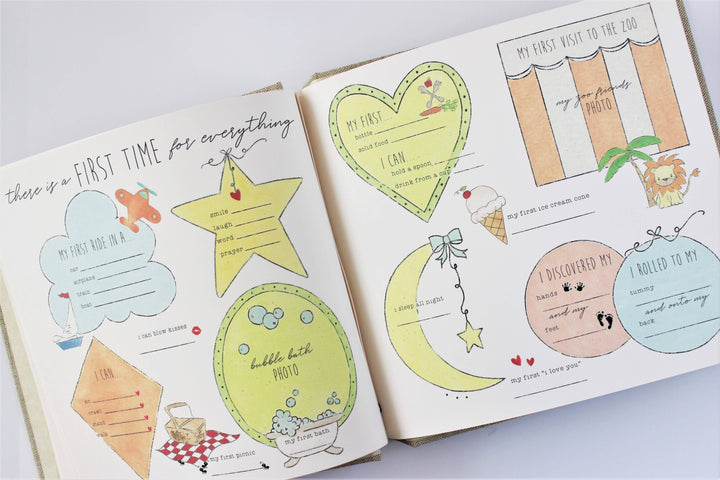 there is a FIRST TIME for everything
MY FIRST RIDE IN A...
car
airplane
train
boat
smile
laugh
word
prayer
i can blow kisses
bubble bath
PHOTO
I CAN
sit
crawl
stand
walk
my first picnic
my first bath
MY FIRST...
bottle
solid food
I CAN....
hold a spoon
drink from a cup
MY FIRST VISIT TO THE ZOO
my zoo friends
PHOTO
my first ice cream cone
i sleep all night
I DISCOVERED MY
hands
and my
feet
I ROLLED TO MY
tummy
and onto my
back
my first "i love you"